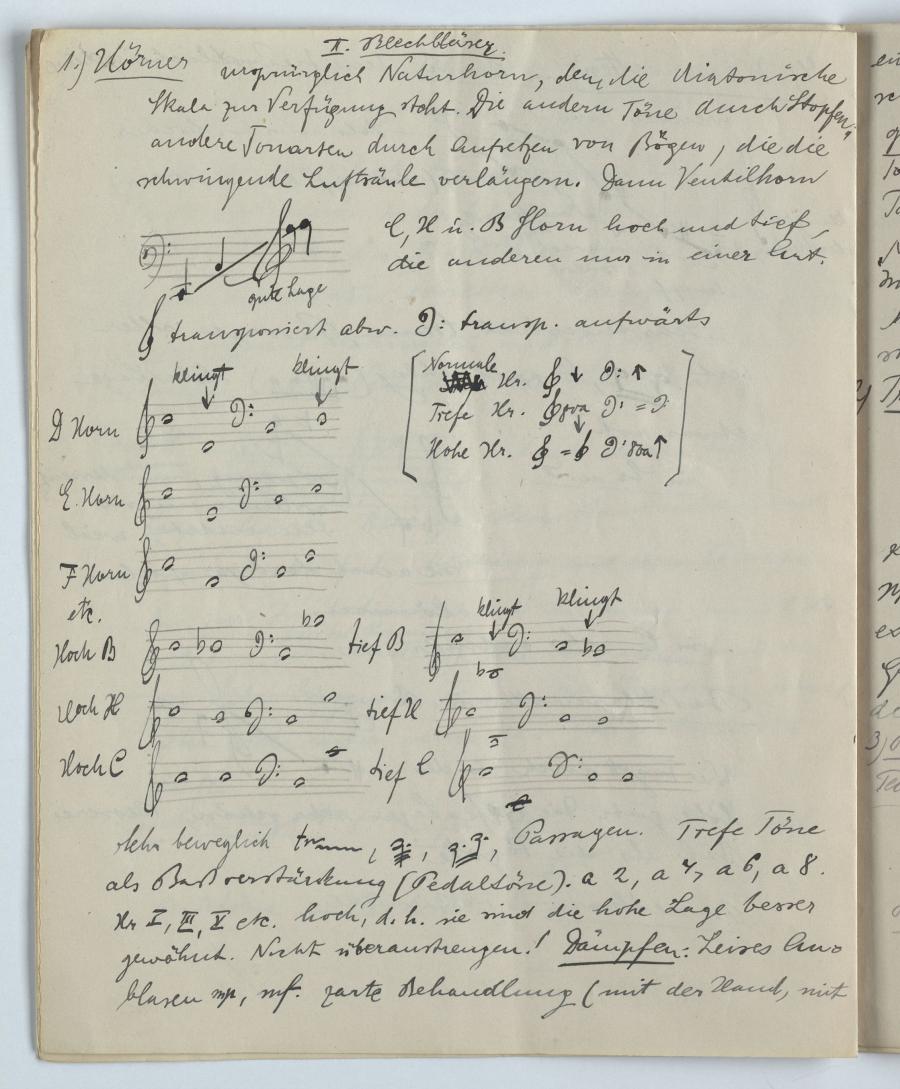 II. Blechbläser.
1.) Hörner ursprünglich Naturhorn, dem die diatonische
Skala zur Verfügung steht. Die andern Töne durch Stopfen,
andere Tonarten durch Aufsetzen von Bögen, die die
schwingende Luftsäule verlängern. Dann Ventilhorn
C, H u. B Horn hoch und tief,
die anderen nur in einer Art.
gute Lage
transponiert abw. transp. aufwärts
klingt klingt
D Horn
E. Horn
F Horn
etc.
Normale Hr. ↓ ↑
Tiefe Hr. 8va ↓ =
Hohe Hr. = 8va ↑
klingt klingt
Hoch B tief B
Hoch H tief H
Hoch C tief C
Sehr beweglich tr, Passagen. Tiefe Töne
als Baßverstärkung (Pedaltöne). a 2, a 4, a 6, a 8.
Hr I, III, V etc. hoch, d. h. sie sind die hohe Lage besser
gewöhnt. Nicht überanstrengen! Dämpfen: Leises An-
blasen mp, mf. zarte Behandlung (mit der Hand, mit